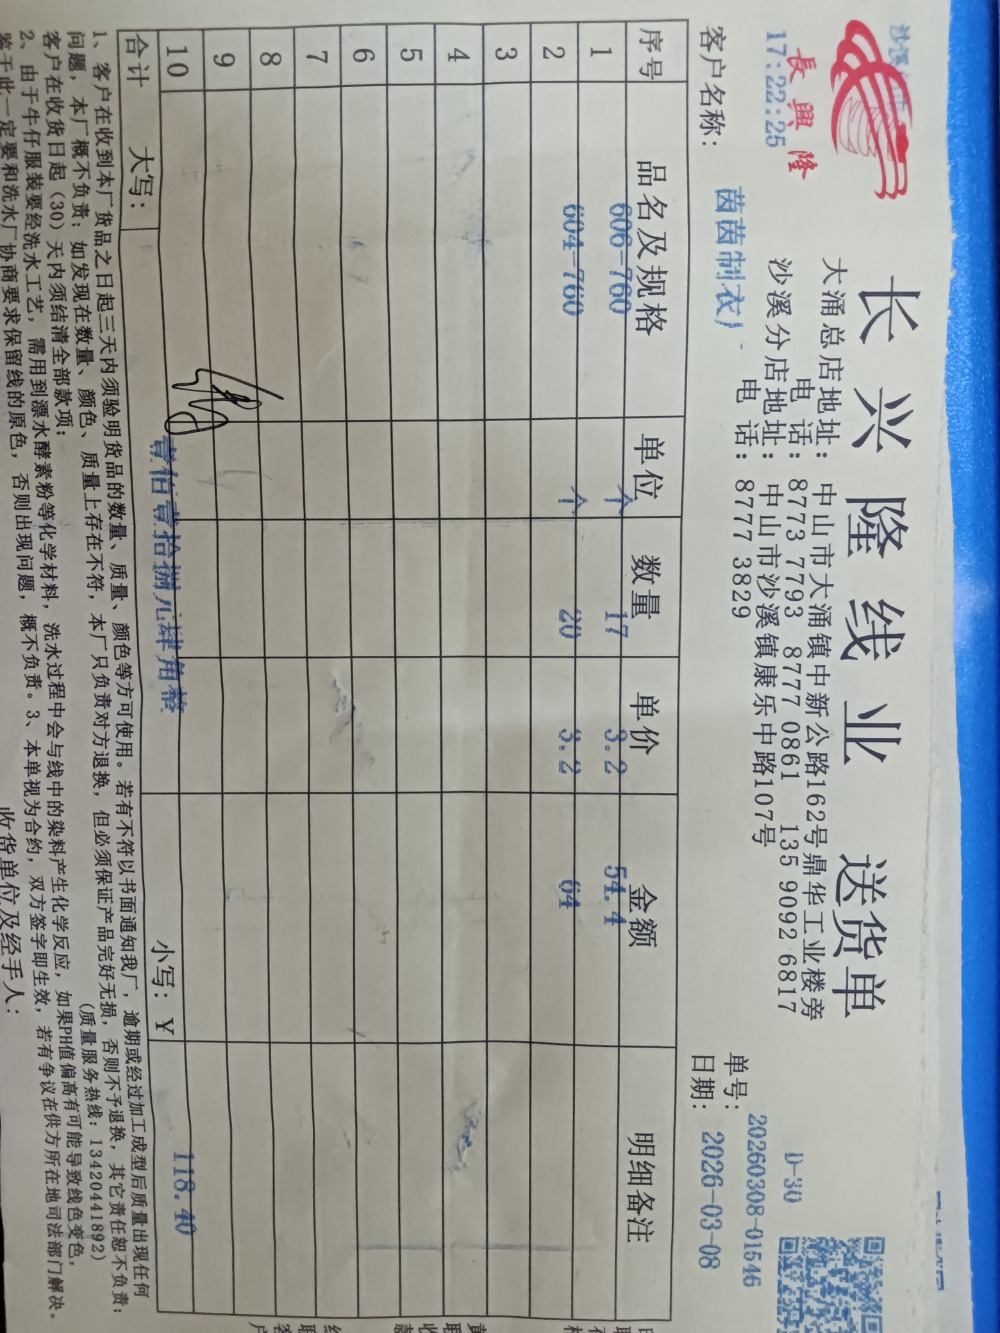 长兴隆线业 送货单
長興隆
17:22:25
大涌总店地址: 中山市大涌镇中新公路162号鼎华工业楼旁
电 话: 8773 7793 8777 0861 135 9092 6817
沙溪分店地址: 中山市沙溪镇康乐中路107号
电 话: 8777 3829
D-30
单号: 20260308-01546
客户名称: 茵茵制衣厂
日期: 2026-03-08
序号 品名及规格 单位 数量 单价 金额 明细备注
1 606-760 个 17 3.2 54.4
2 604-760 个 20 3.2 64
3
4
5
6
7
8
9
10
合计 大写: 壹佰壹拾捌元肆角整 小写: ¥ 118.40
1、客户在收到本厂货品之日起三天内须验明货品的数量、质量、颜色等方可使用。若有不符以书面通知我厂,逾期或经过加工成型后质量出现任何
问题,本厂概不负责;如发现在数量、颜色、质量上存在不符,本厂只负责对方退换,但必须保证产品完好无损,否则不予退换,其它责任恕不负责;
客户在收货日起(30)天内须结清全部款项; (质量服务热线: 13420441892)
2、由于牛仔服装要经洗水工艺,需用到漂水酵素粉等化学材料,洗水过程中会与线中的染料产生化学反应,如果PH值偏高有可能导致线色变色,
鉴于此一定要和洗水厂协商要求保留线的原色,否则出现问题,概不负责。3、本单视为合约,双方签字即生效,若有争议在供方所在地司法部门解决。
收货单位及经手人: